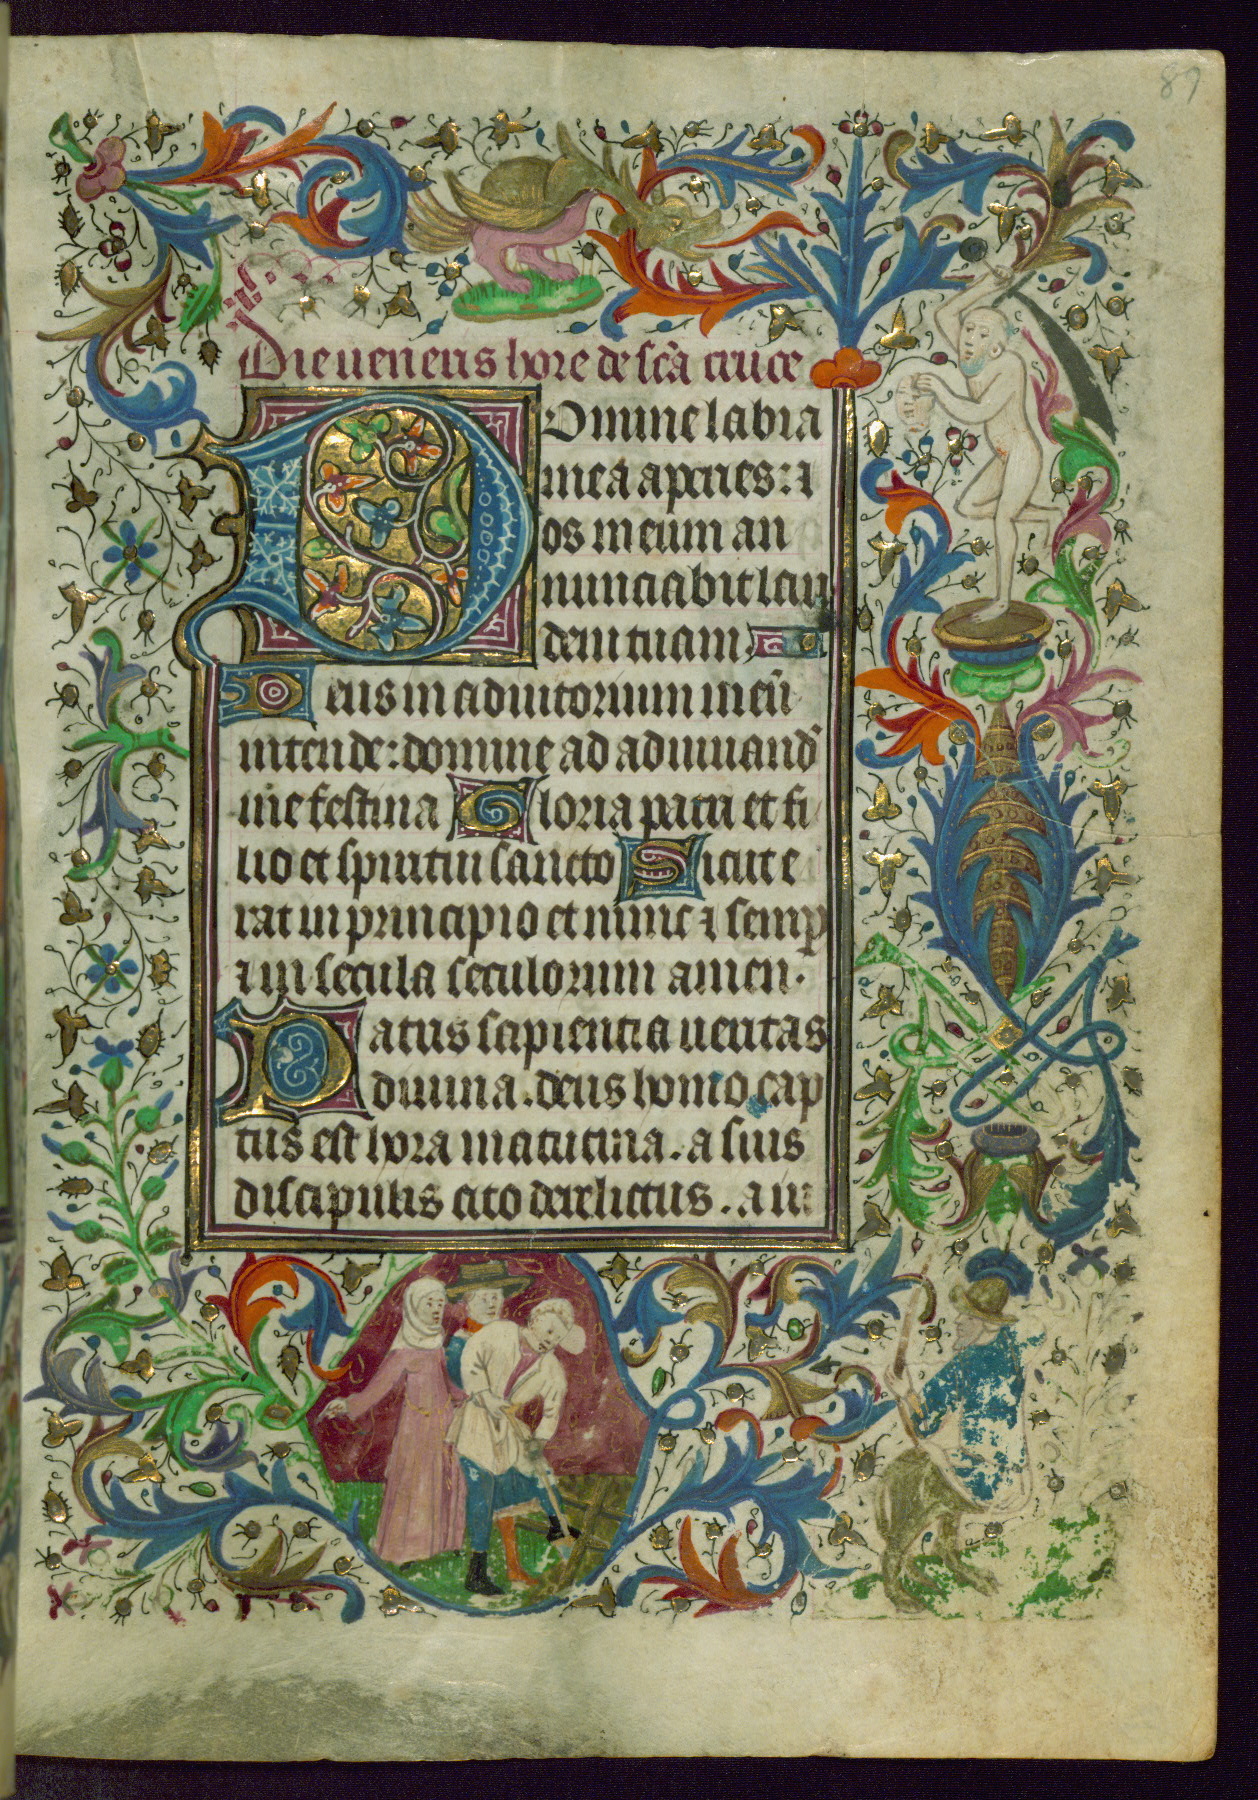 89
Die veneris hore de scā cruce
Domine labia
mea aperies: ⁊
os meum an
nunciabit lau
dem tuam.
Deus in adiutorium meū
intende: domine ad adiuuand̄
me festina Gloria patri et fi
lio et spiritui sancto Sicut e
rat in principio et nunc ⁊ semp
⁊ in secula seculorum amen.
Patris sapientia ueritas
diuina. deus homo cap
tus est hora matutina. a suis
discipulis cito derelictus. a iu